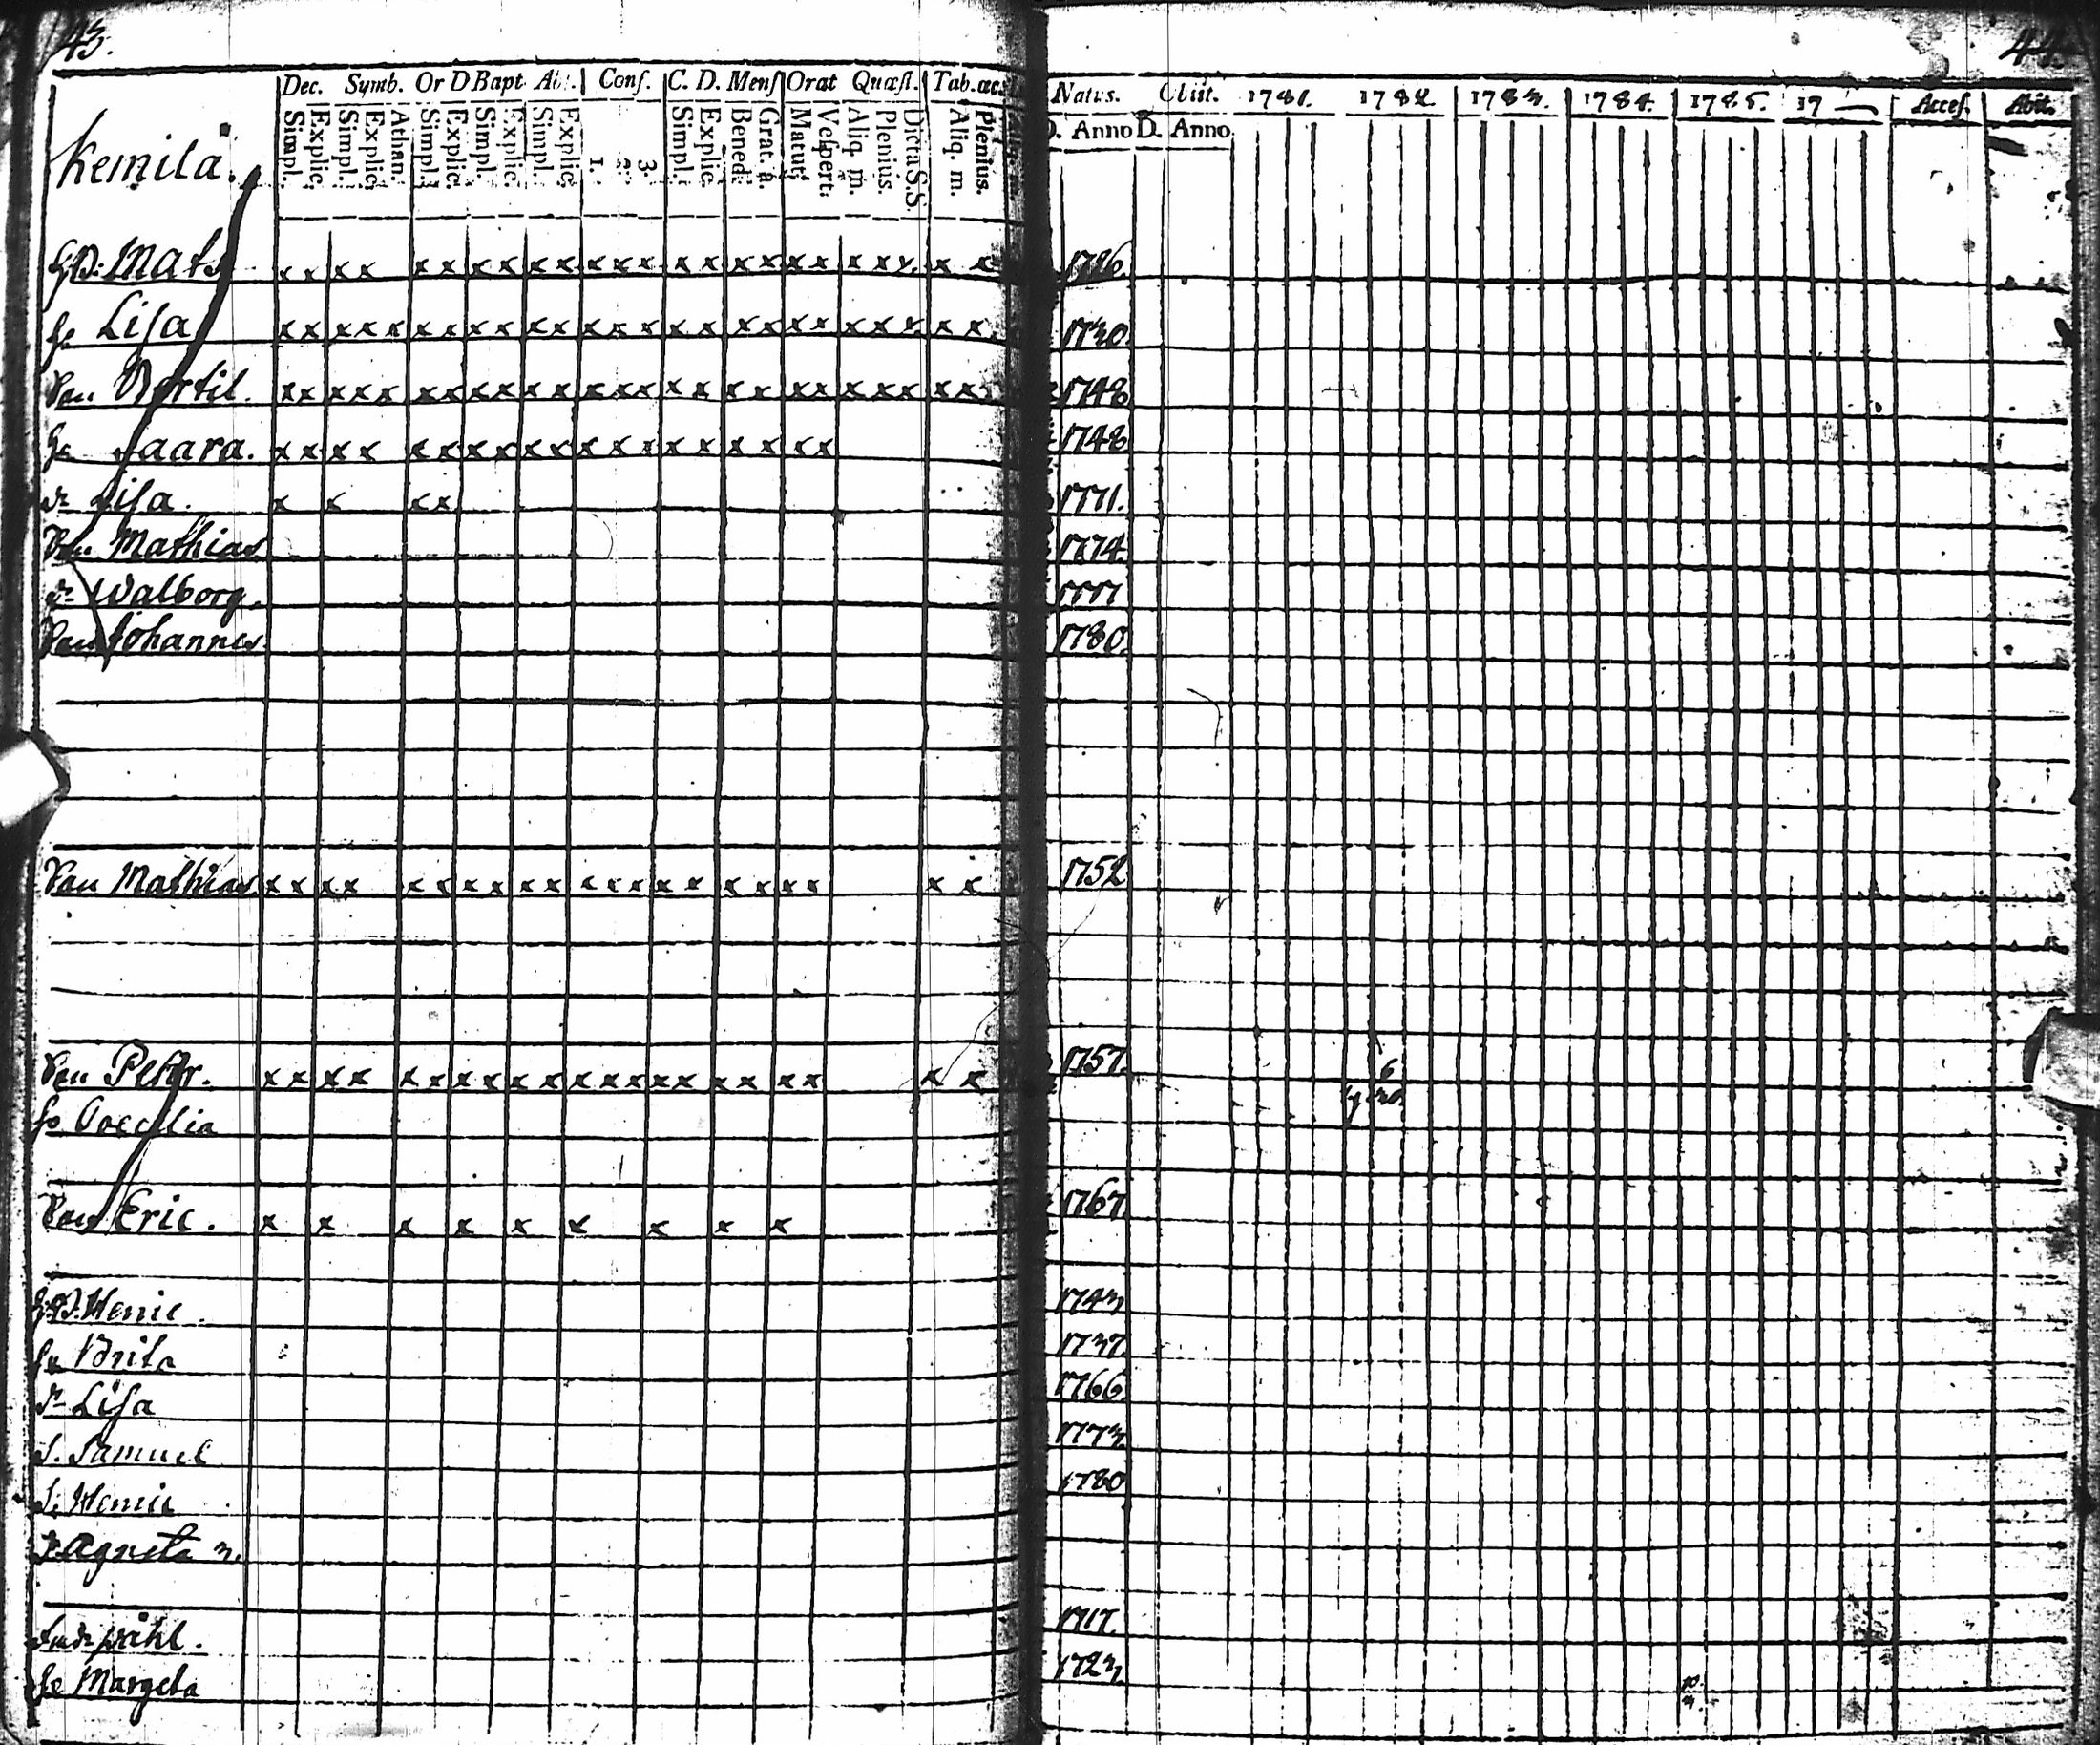 43.
Dec. Symb. Or D Bapt Abs. Conf. C. D. Mens Orat Quæst. Tab. œc.
Simpl. Explic. Simpl. Explic. Athan. Simpl. Explic. Simpl. Explic. Simpl. Explic. 1. 2. 3. Simpl. Explic. Bened. Grat. a. Matut. Vespert. Aliq. m. Plenius. Dicta S.S. Aliq. m. Plenius.
Natus. Obiit. 1781. 1782. 1783. 1784. 1785. 17 Access. Abit.
D. Anno D. Anno
Kemilä.
Mats x x x x x x x x x x x x x x x x x x x x x x x x
hu Lisa x x x x x x x x x x x x x x x x x x x x x x x x x 1730.
Son Bertil. x x x x x x x x x x x x x x x x x x x x x x x x x 1748
hu Saara. x x x x x x x x x x x x x x x x x x x 1748
dr Lisa. x x x x 1771.
Son Mathias 1774
dr Walborg. 1777
Son Johannes 1780.
Son Mathias x x x x x x x x x x x x x x x x x x x x x 1752
Son Petter. x x x x x x x x x x x x x x x x x x x x x 1757. 6
hu Coecilia
Son Eric. x x x x x x x x x 1767.
Henric 1743
hu Brita 1737
dr Lisa 1766
S. Samuel 1773
S. Henric 1780
P. Agneta
1717.
hu Margeta 1723.